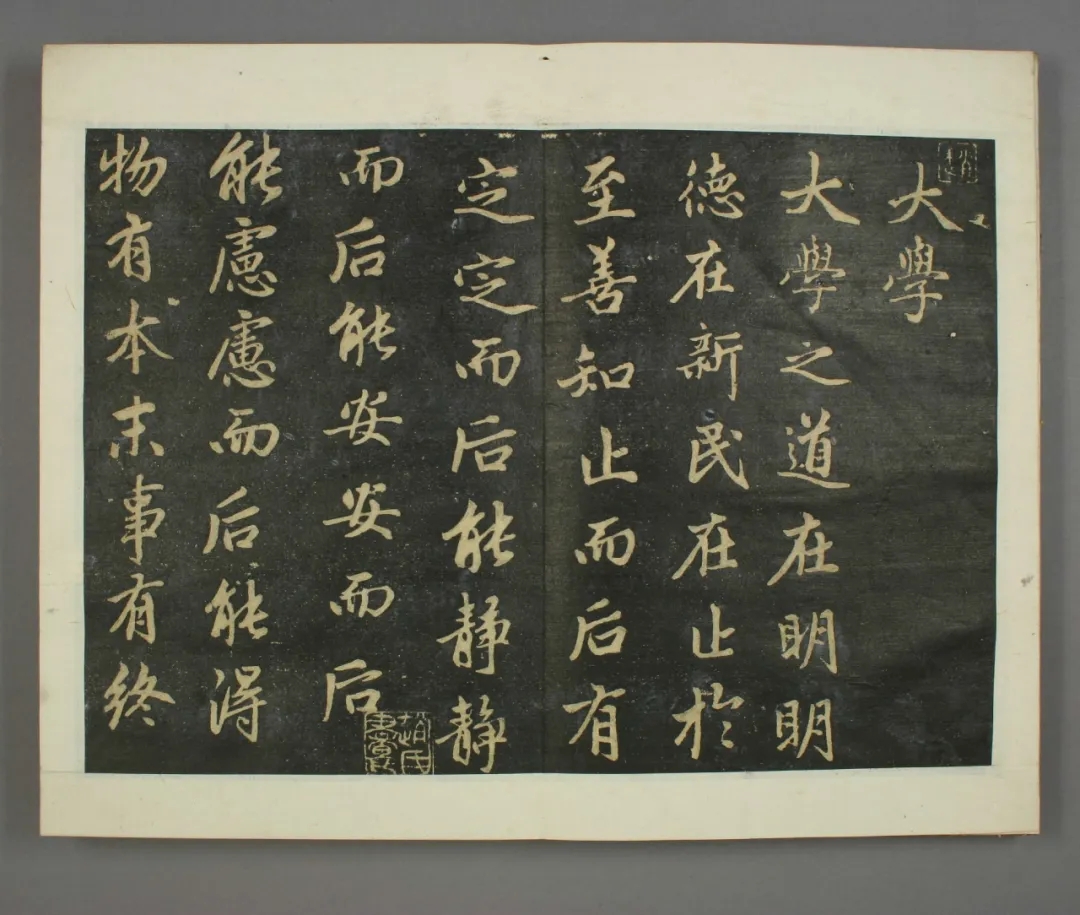 大學
大學之道在明明
德在新民在止於
至善知止而后有
定定而后能靜靜
而后能安安而后
能慮慮而后能得
物有本末事有終